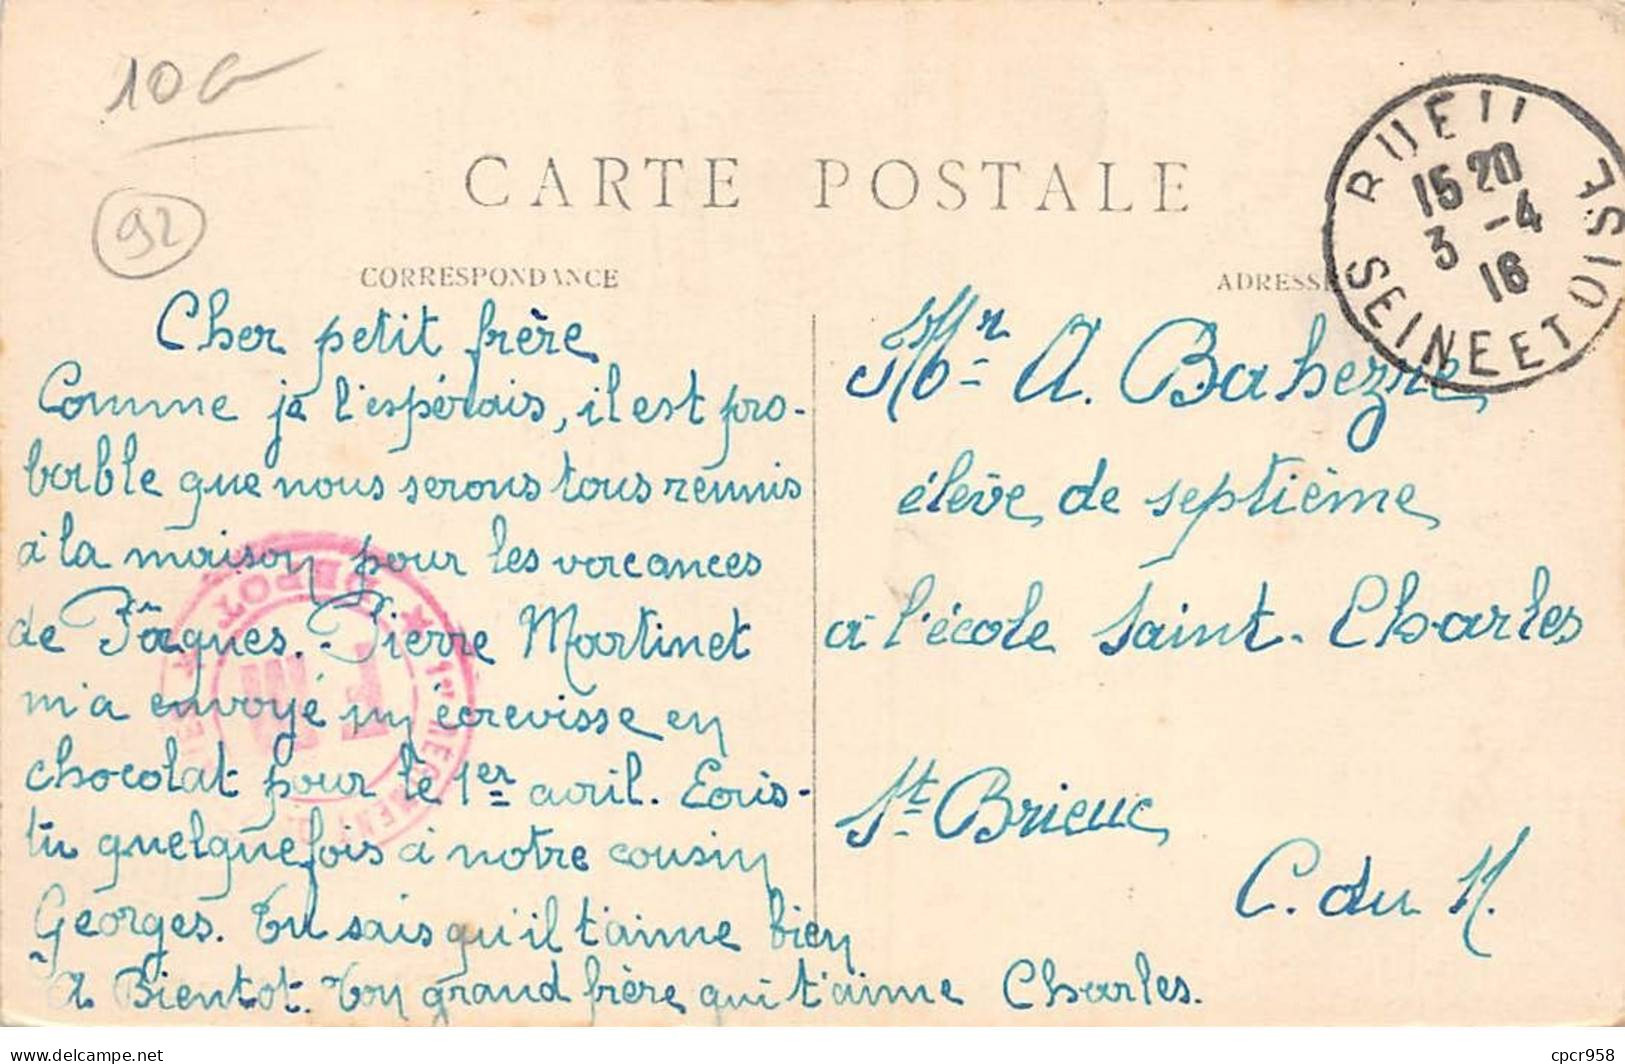 10 G
92
CARTE POSTALE
CORRESPONDANCE
ADRESSE
RUEIL
15 20
3 -4
16
SEINE ET OISE
Cher petit frère
Comme je l'espérais, il est pro-
bable que nous serons tous reunis
à la maison pour les vacances
de Pâques. Pierre Martinet
m'a envoyé un écrevisse en
chocolat pour le 1er avril. Ecris-
tu quelquefois à notre cousin
Georges. Tu sais qu'il t'aime bien
A Bientot. Ton grand frère qui t'aime Charles.
Mr A. Bahezre
élève de septième
à l'école Saint-Charles
St Brieuc
C. du N.
DEPOT
1er REGIMENT
delcampe.net
cpcr958